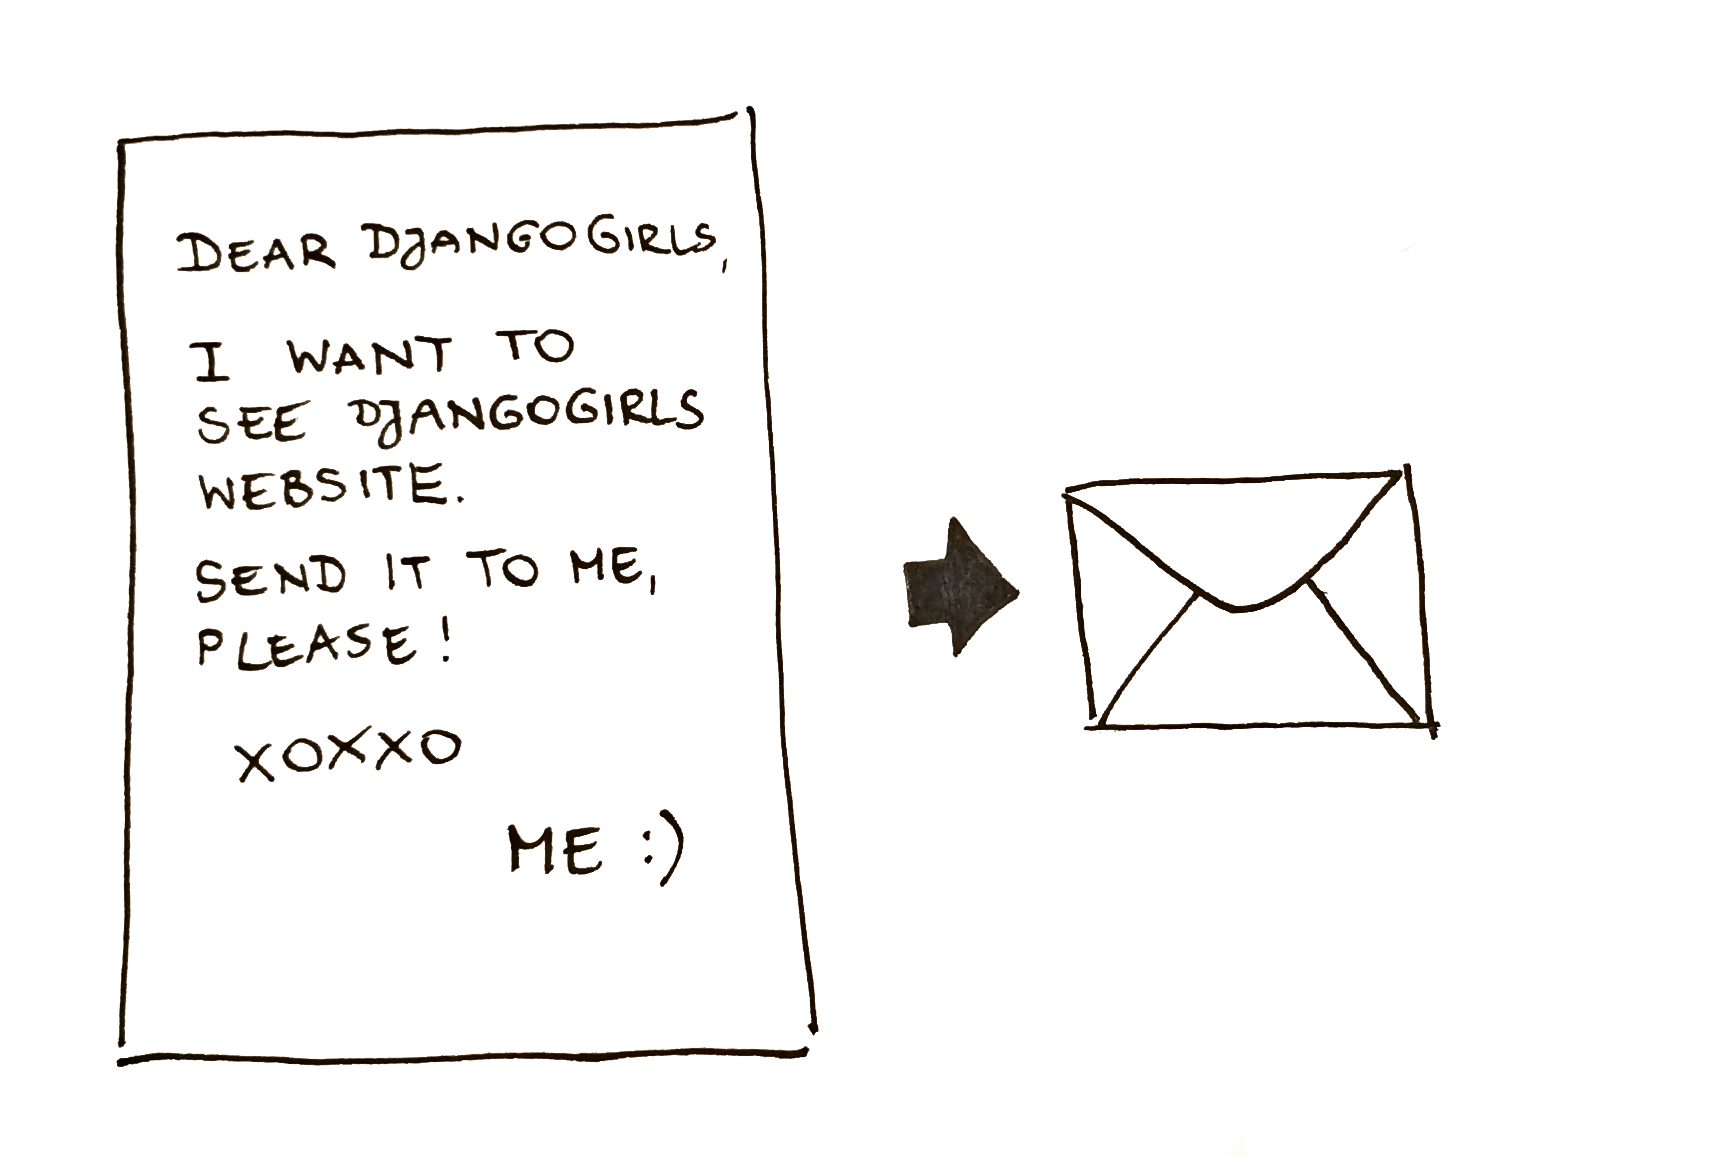 DEAR DJANGOGIRLS,
I WANT TO
SEE DJANGOGIRLS
WEBSITE.
SEND IT TO ME,
PLEASE!
XOXXO
ME :)